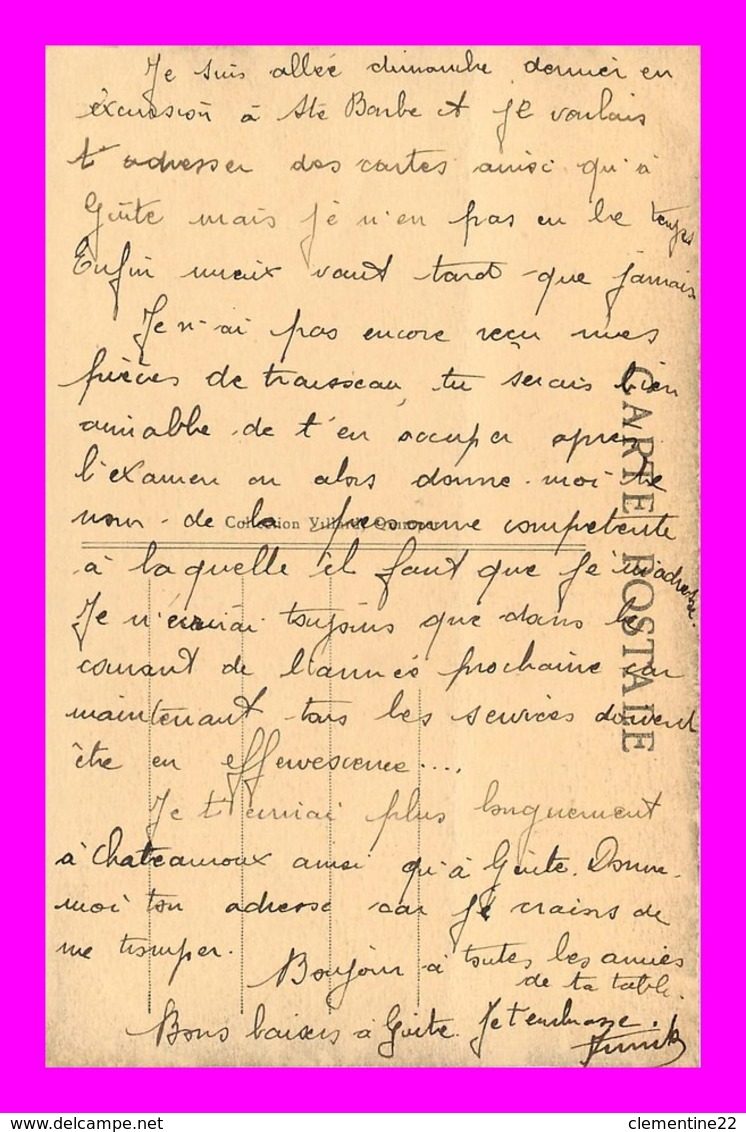 Je suis allée dimanche dernier en
excursion à Ste Barbe et je voulais
t'adresser des cartes ainsi qu'à
Guite mais je n'en pas eu le temps
Enfin mieux vaut tard que jamais
Je n'ai pas encore reçu mes
pièces de trousseau, tu serais bien
aimable de t'en occuper après
l'examen ou alors donne-moi le
nom de la personne compétente
Collection Villard, Quimper
à laquelle il faut que je m'adresse.
Je n'écrirai toujours que dans le
courant de l'année prochaine car
maintenant tous les services doivent
être en effervescence....
Je t'écrirai plus longuement
à Chateauroux ainsi qu'à Guite. Donne-
moi ton adresse car je crains de
me tromper.
Bonjour à toutes les amies
de ta table.
Bons baisers à Guite. Je t'embrasse.
CARTE POSTALE
clementine22